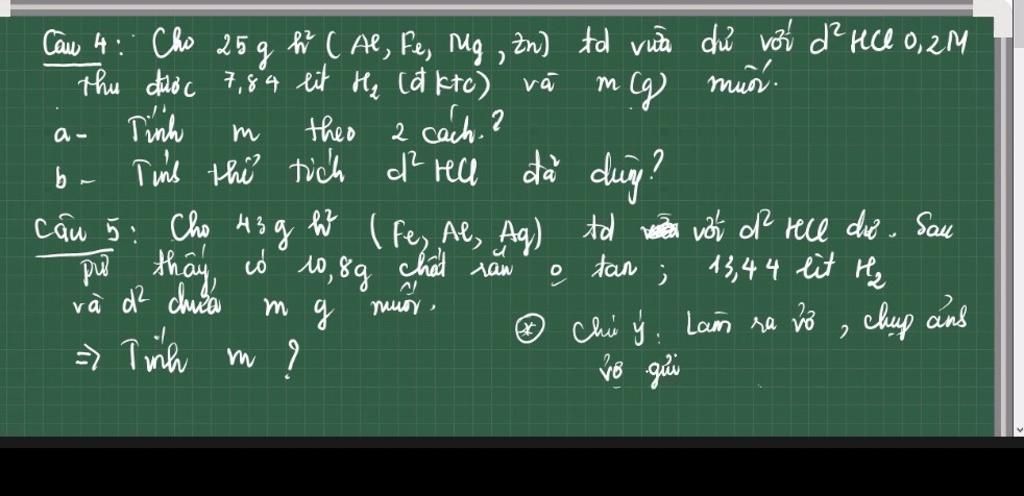 Câu 4: Cho 25g h² (Al, Fe, Mg, Zn) td vừa đủ với d² HCl 0,2M
thu được 7,84 lít H₂ (đktc) và m(g) muối.
a - Tính m theo 2 cách.?
b - Tính thể tích d² HCl đã dùng?
Câu 5: Cho 43g h² (Fe, Al, Ag) td với d² HCl dư. Sau
pư thấy có 10,8g chất rắn o tan; 13,44 lít H₂
và d² chứa m g muối.
⇒ Tính m ?
* Chú ý: Làm ra vở, chụp ảnh
vở gửi